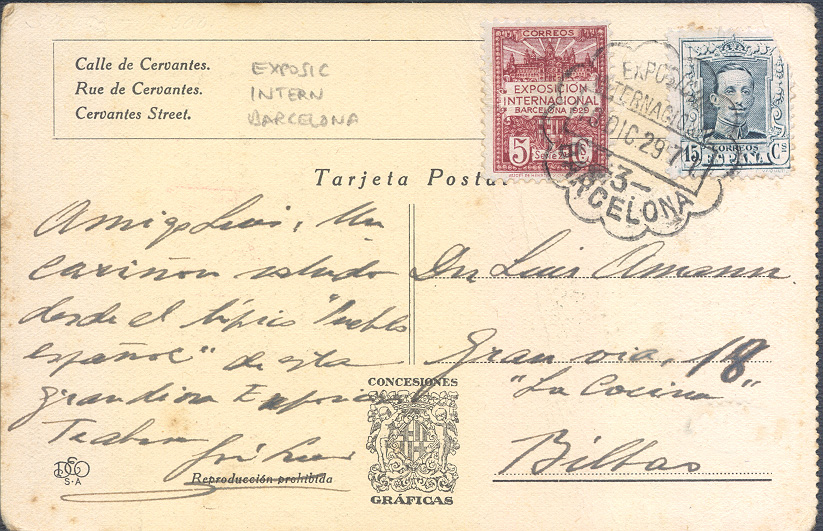 Calle de Cervantes.
Rue de Cervantes.
Cervantes Street.
EXPOSIC
INTERN
BARCELONA
CORREOS
EXPOSICIÓN
INTERNACIONAL
BARCELONA 1929
5 Serie 5
EXPOSICION
INTERNACIONAL
DIC.29
-3-
BARCELONA
15 CORREOS Cs
ESPAÑA
Tarjeta Postal
Amigo Luis, Un
cariñoso saludo
desde el típico "Pueblo
español" de esta
grandiosa Exposición
Dn Luis Amann
Gran via, 18
"La Cocina"
Bilbao
CONCESIONES
GRÁFICAS
S.A
Reproducción prohibida